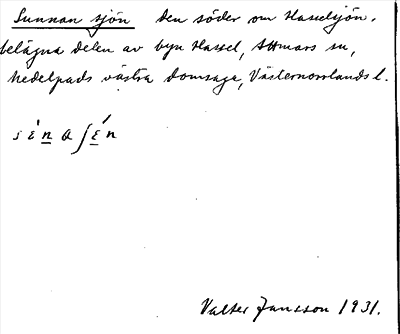 Sunnan sjön den söder om Hasselsjön.
belägna delen av byn Hassel, Attmars sn,
Medelpads västra domsaga, Västernorrlands l.
Valter Jansson 1931.